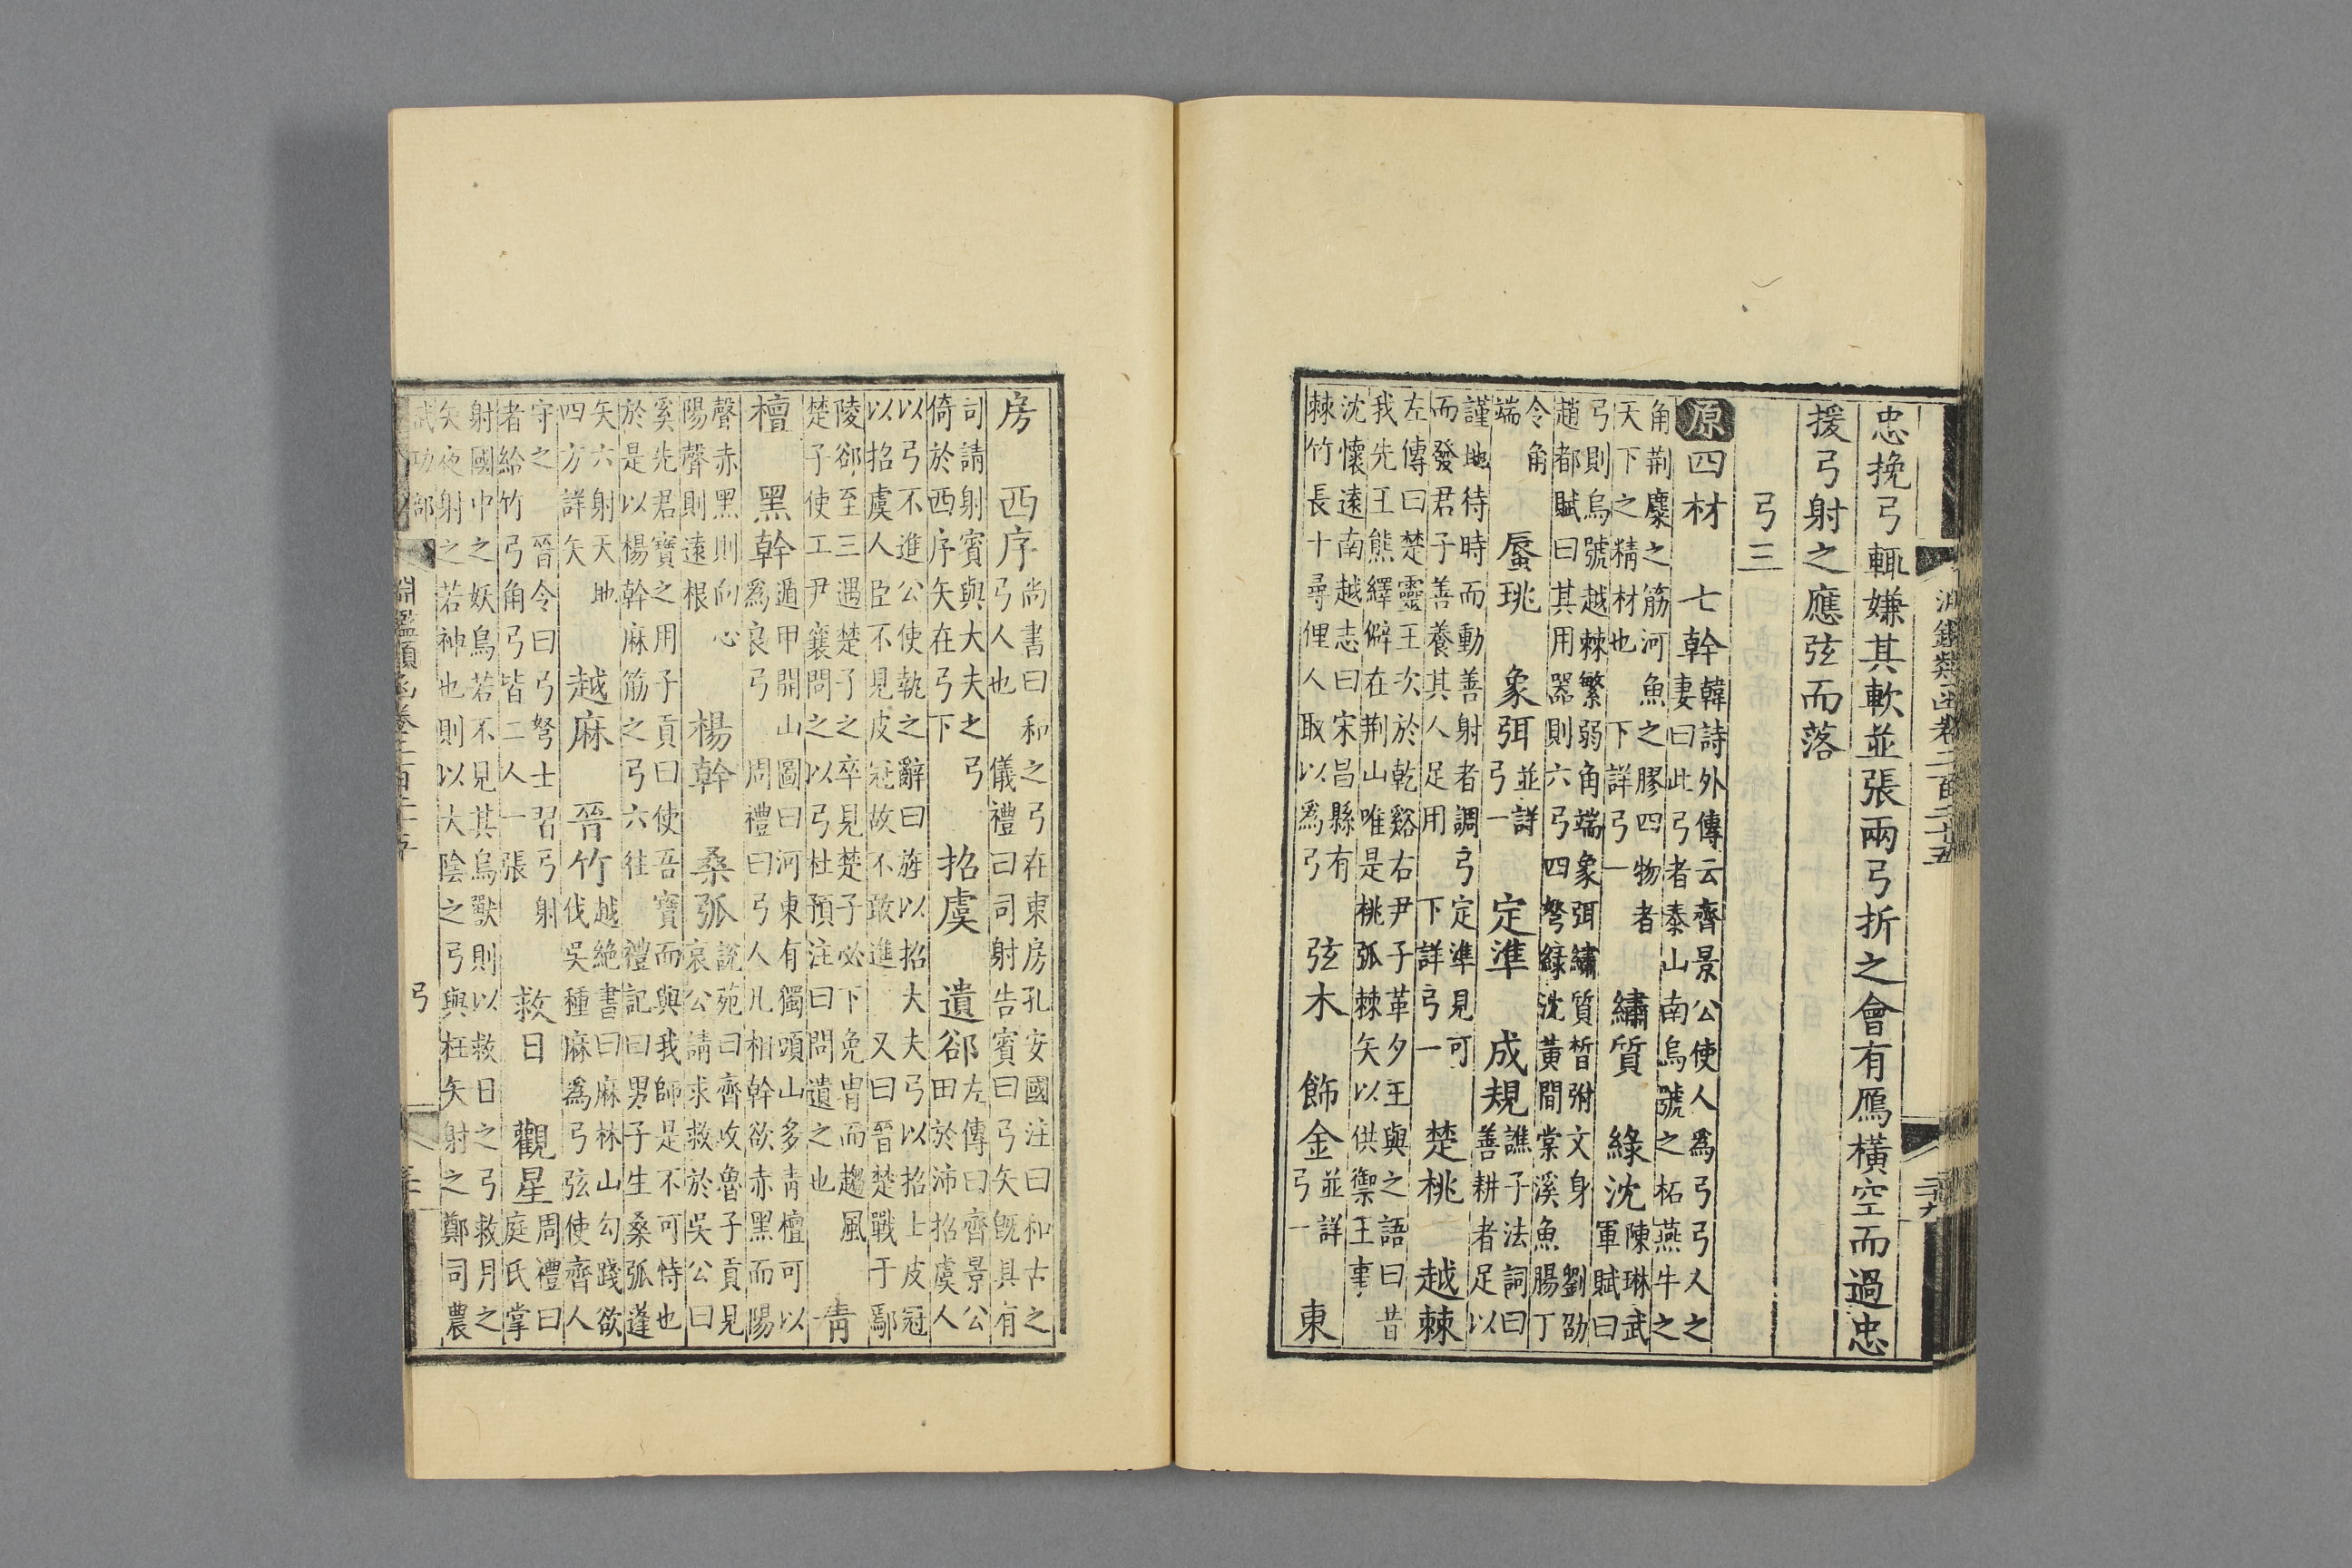 淵鑑類函卷二百二十五
忠挽弓輒嫌其軟並張兩弓折之會有鴈橫空而過忠
援弓射之應弦而落
弓三
原四材 七幹
韓詩外傳云齊景公使人爲弓弓人之
妻曰此弓者泰山南烏號之柘燕牛之
角荆麋之筋河魚之膠四物者
天下之精材也 下詳弓一
繡質 綠沈
陳琳武
軍賦曰
弓則烏號越棘繁弱角端象弭繡質晳弣文身 劉劭
趙都賦曰其用器則六弓四弩綠沈黃間棠溪魚腸丁
令角
端
蜃珧 象弭
並詳
弓一
定準 成規
譙子法詞曰
善耕者足以
謹地待時而動善射者調弓定準見可
而發君子善養其人足用 下詳弓一
楚桃 越棘
左傳曰楚靈王次於乾谿右尹子革夕王與之語曰昔
我先王熊繹僻在荆山唯是桃弧棘矢以供禦王事
沈懷遠南越志曰宋昌縣有
棘竹長十尋俚人取以爲弓
弦木 飾金
並詳
弓一
東
房 西序
尚書曰 和之弓在東房孔安國注曰和古之
弓人也 儀禮曰司射告賓曰弓矢既具有
司請射賓與大夫之弓
倚於西序矢在弓下
招虞 遺郤
左傳曰齊景公
田於沛招虞人
以弓不進公使執之辭曰旃以招大夫弓以招士皮冠
以招虞人臣不見皮冠故不敢進 又曰晉楚戰于鄢
陵郤至三遇楚子之卒見楚子必下免胄而趨風
楚子使工尹襄問之以弓杜預注曰問遺之也
青
檀 黑幹
遁甲開山圖曰河東有獨頭山多青檀可以
爲良弓 周禮曰弓人凡相幹欲赤黑而陽
聲赤黑則向心
陽聲則遠根
楊幹 桑弧
說苑曰齊攻魯子貢見
哀公請求救於吳公曰
奚先君寶之用子貢曰使吾寶而與我師是不可恃也
於是以楊幹麻筋之弓六往 禮記曰男子生桑弧蓬
矢六射天地
四方詳矢
越麻 晉竹
越絶書曰麻林山勾踐欲
伐吳種麻爲弓弦使齊人
守之 晉令曰弓弩士習弓射
者給竹弓角弓皆二人一張
救日 觀星
周禮曰
庭氏掌
射國中之妖鳥若不見其鳥獸則以救日之弓救月之
矢夜射之若神也則以大陰之弓與枉矢射之鄭司農
武功部 淵鑑類函卷二百二十五 弓